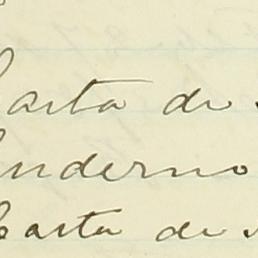 Carta de
Cuaderno
Carta de